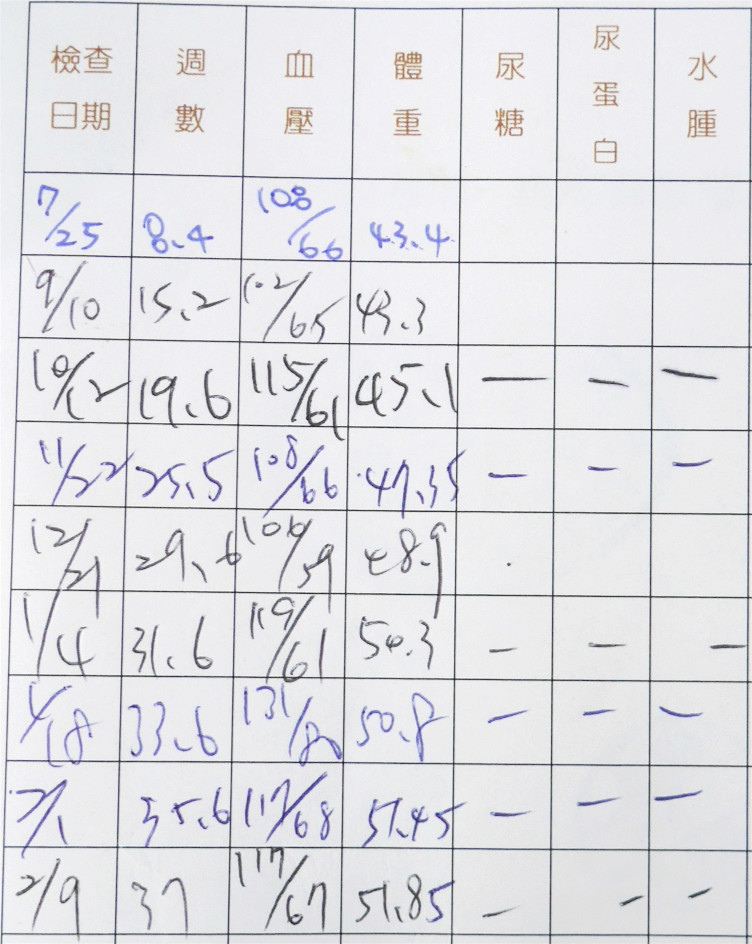 檢查日期 週數 血壓 體重 尿糖 尿蛋白 水腫
7/25 8.4 108/66 43.4
9/10 15.2 102/65 43.3
10/12 19.6 115/61 45.1 — — —
11/22 25.5 108/66 47.35 — — —
12/21 29.6 106/59 48.9 .
1/4 31.6 119/61 50.3 — — —
1/18 33.6 131/80 50.8 — — —
2/1 35.6 117/68 51.45 — — —
2/9 37 117/67 51.85 — — —